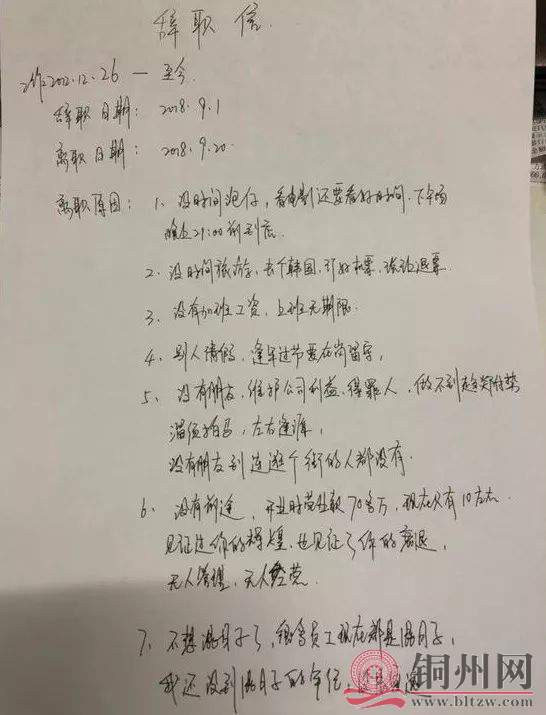 辞职信
工作2012.12.26 — 至今
辞职日期: 2018.9.1
离职日期: 2018.9.20
离职原因: 1、没时间泡仔,看电影还要看好时间.下午场
晚上21:00前到店
2、没时间旅游,去个韩国,订好机票,谈论退票
3、没有加班工资,上班无期限
4、别人请假,逢年过节要在岗留守,
5、没有朋友,维护公司利益,得罪人,做不到趋炎附势
溜须拍马,左右逢源,
没有朋友到连逛个街的人都没有.
6、没有前途,开业时营业额70多万,现在只有10左右.
见证过你的辉煌,也见证了你的衰退,
无人管理,无人经营.
7、不想混日子了,很多员工现在都是混日子,
我还没到混日子的年纪,
铜州网
www.bltzw.com